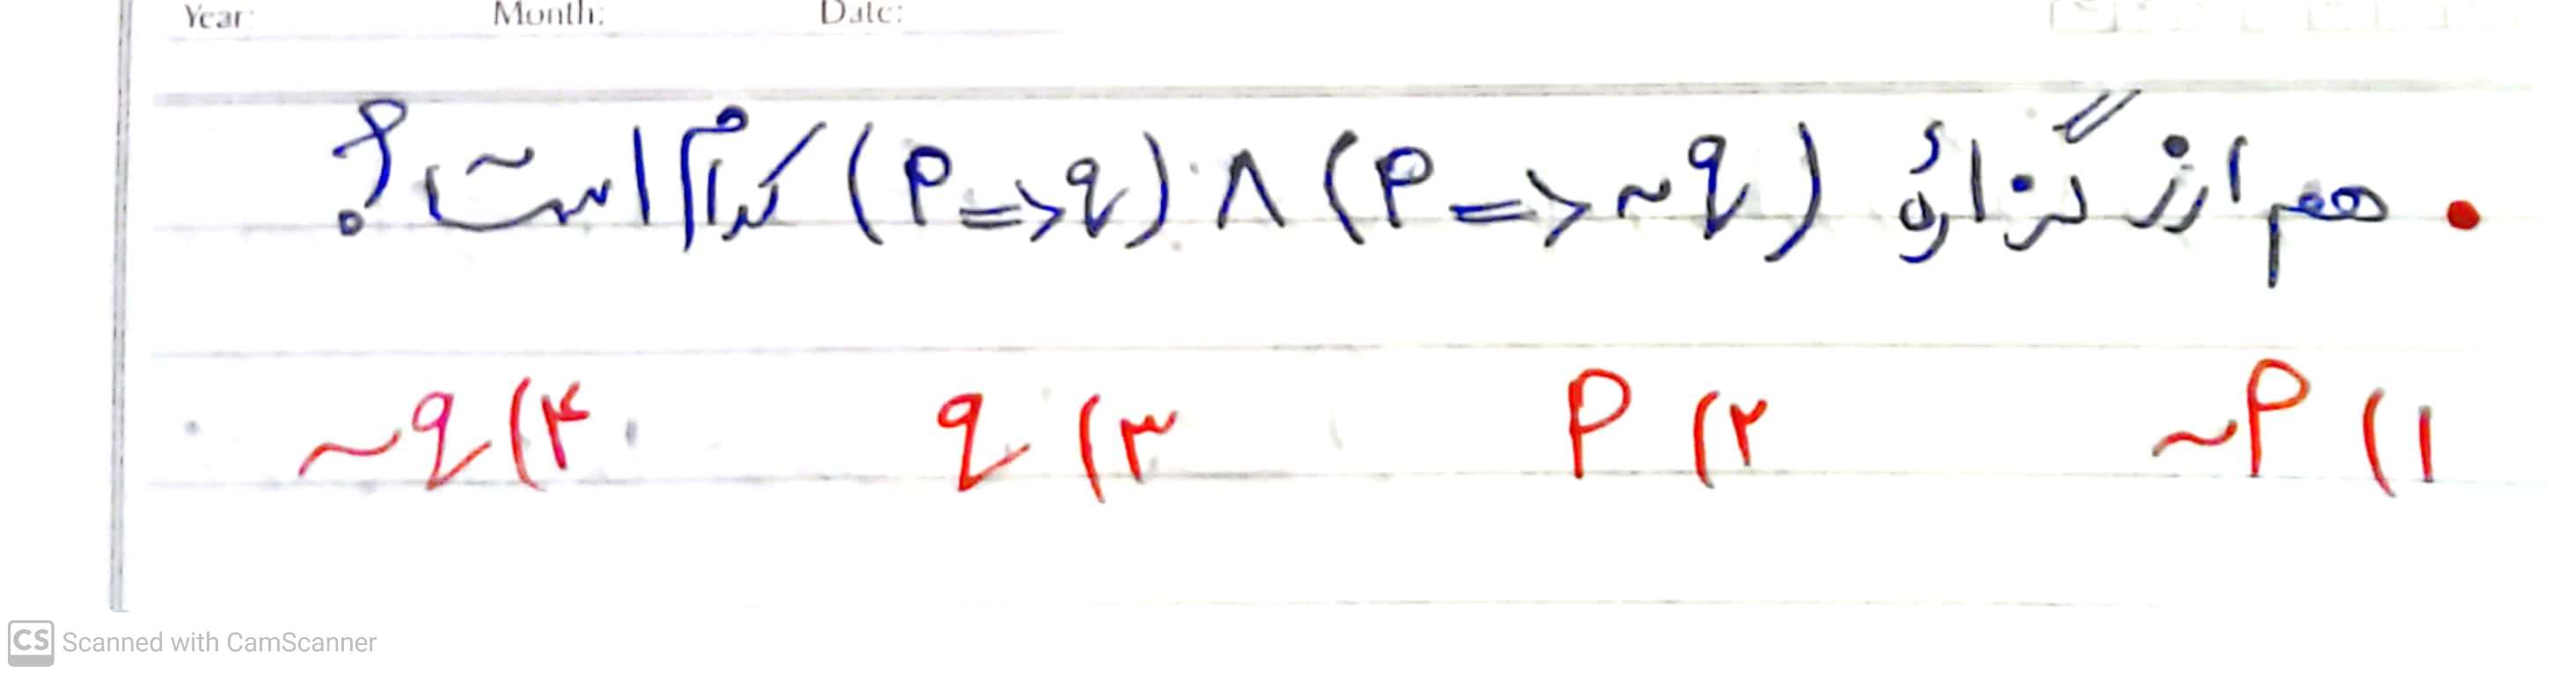 Year: Month: Date:
• هم ارز گزارهٔ (P => q) ∧ (P => ~q) کدام است؟
۱) ~P ۲) P ۳) q ۴) ~q
CS Scanned with CamScanner